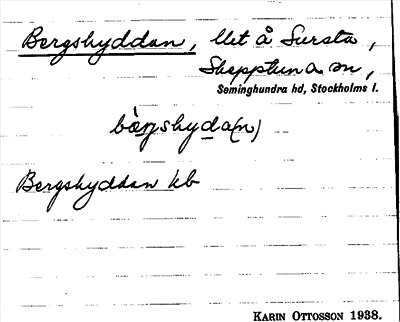 Bergshyddan, llet å Sursta,
Skepptuna sn,
Seminghundra hd, Stockholms l.
bàŋshyda(n)
Bergshyddan kb
KARIN OTTOSSON 1938.